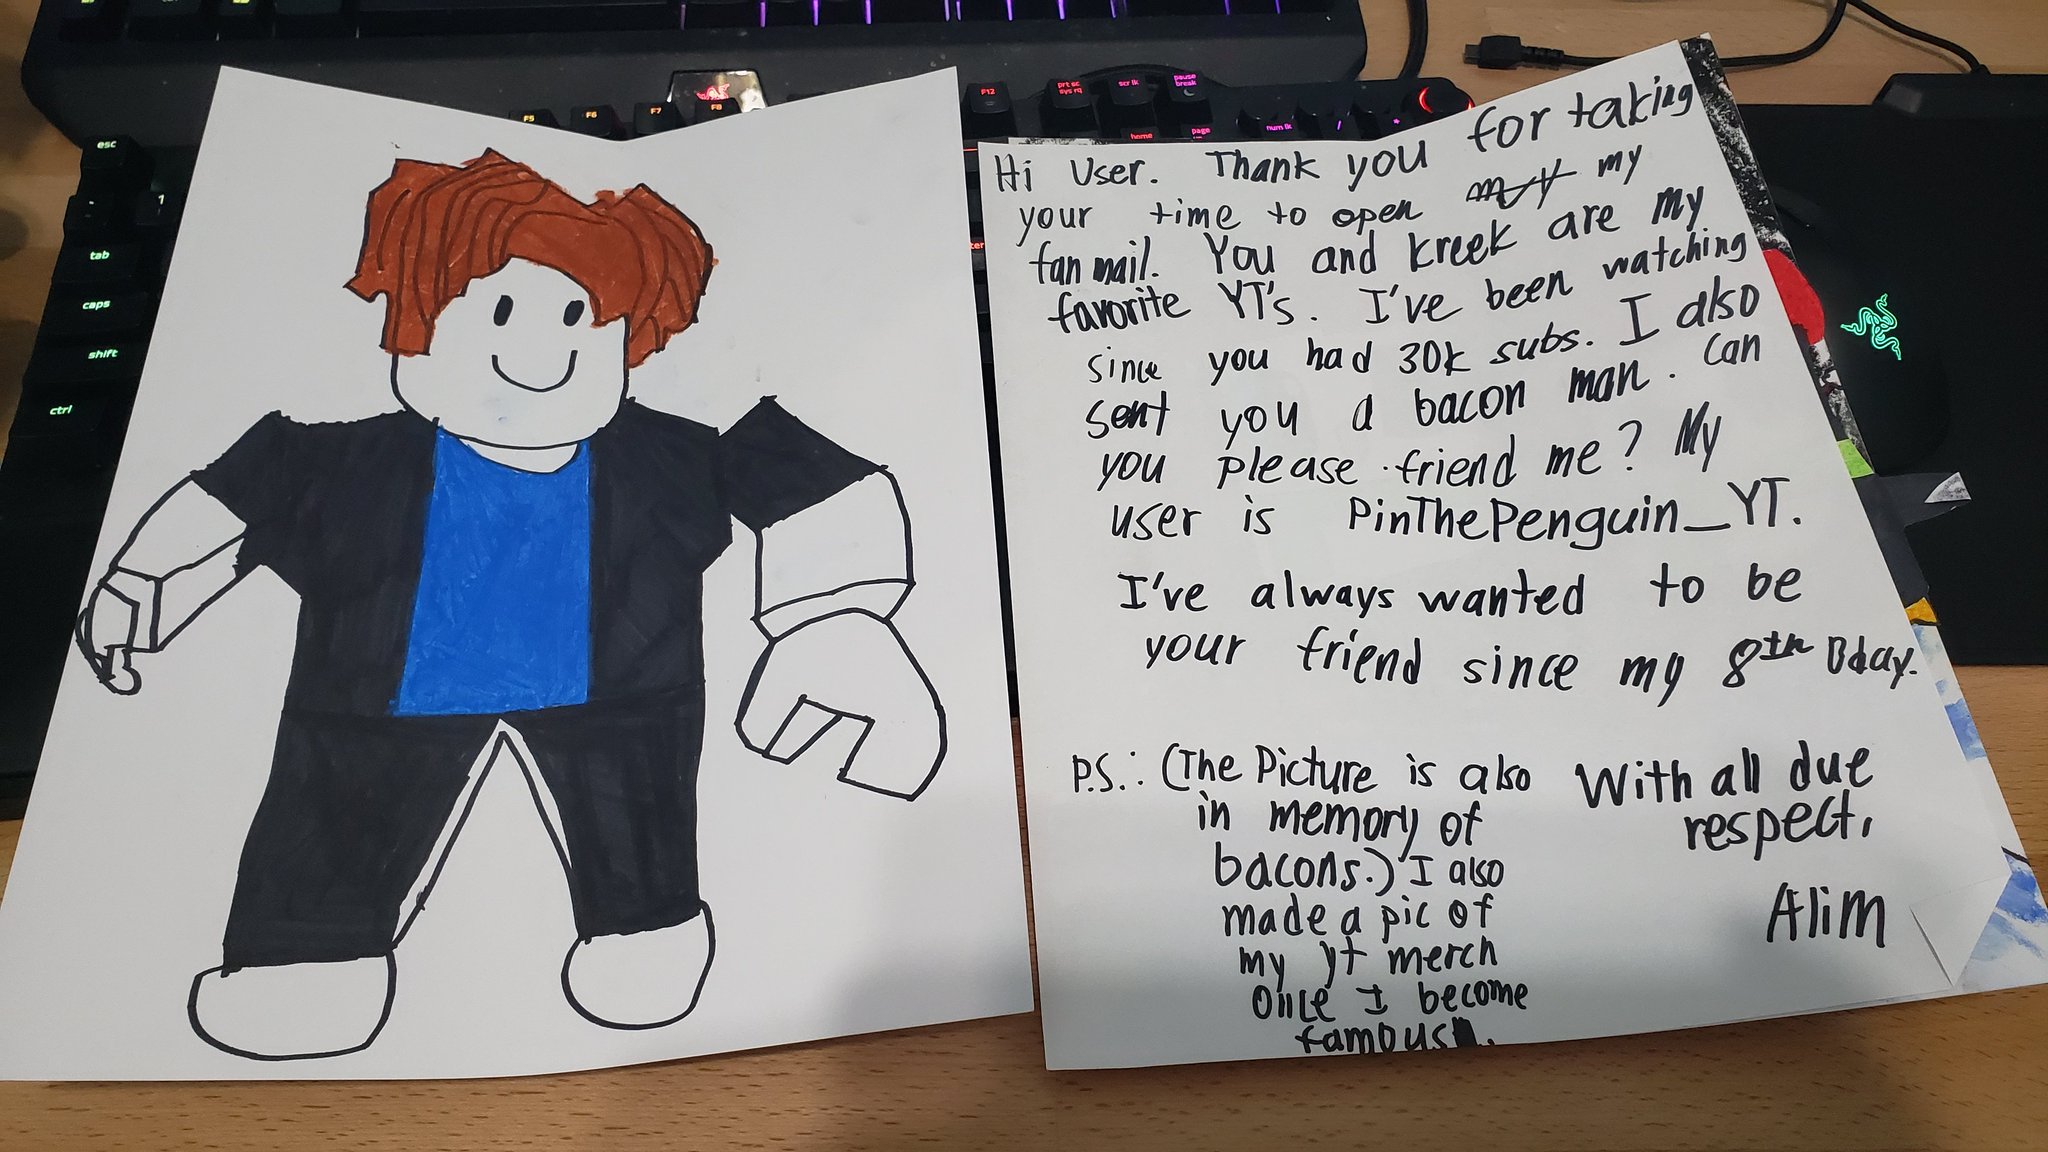 Hi User. Thank you for taking
your time to open my my
fan mail. You and Kreek are my
favorite YT's. I've been watching
since you had 30k subs. I also
sent you a bacon man. Can
you please friend me? My
user is PinThePenguin_YT.
I've always wanted to be
your friend since my 8th Bday.
P.S.: (The Picture is also
in memory of
bacons.) I also
made a pic of
my yt merch
once I become
famous.
With all due
respect,
Alim
esc
1
tab
caps
shift
ctrl
F5
F6
F7
F8
F12
prt sc
sys rq
scr lk
pause
break
home
page
num lk
/
*